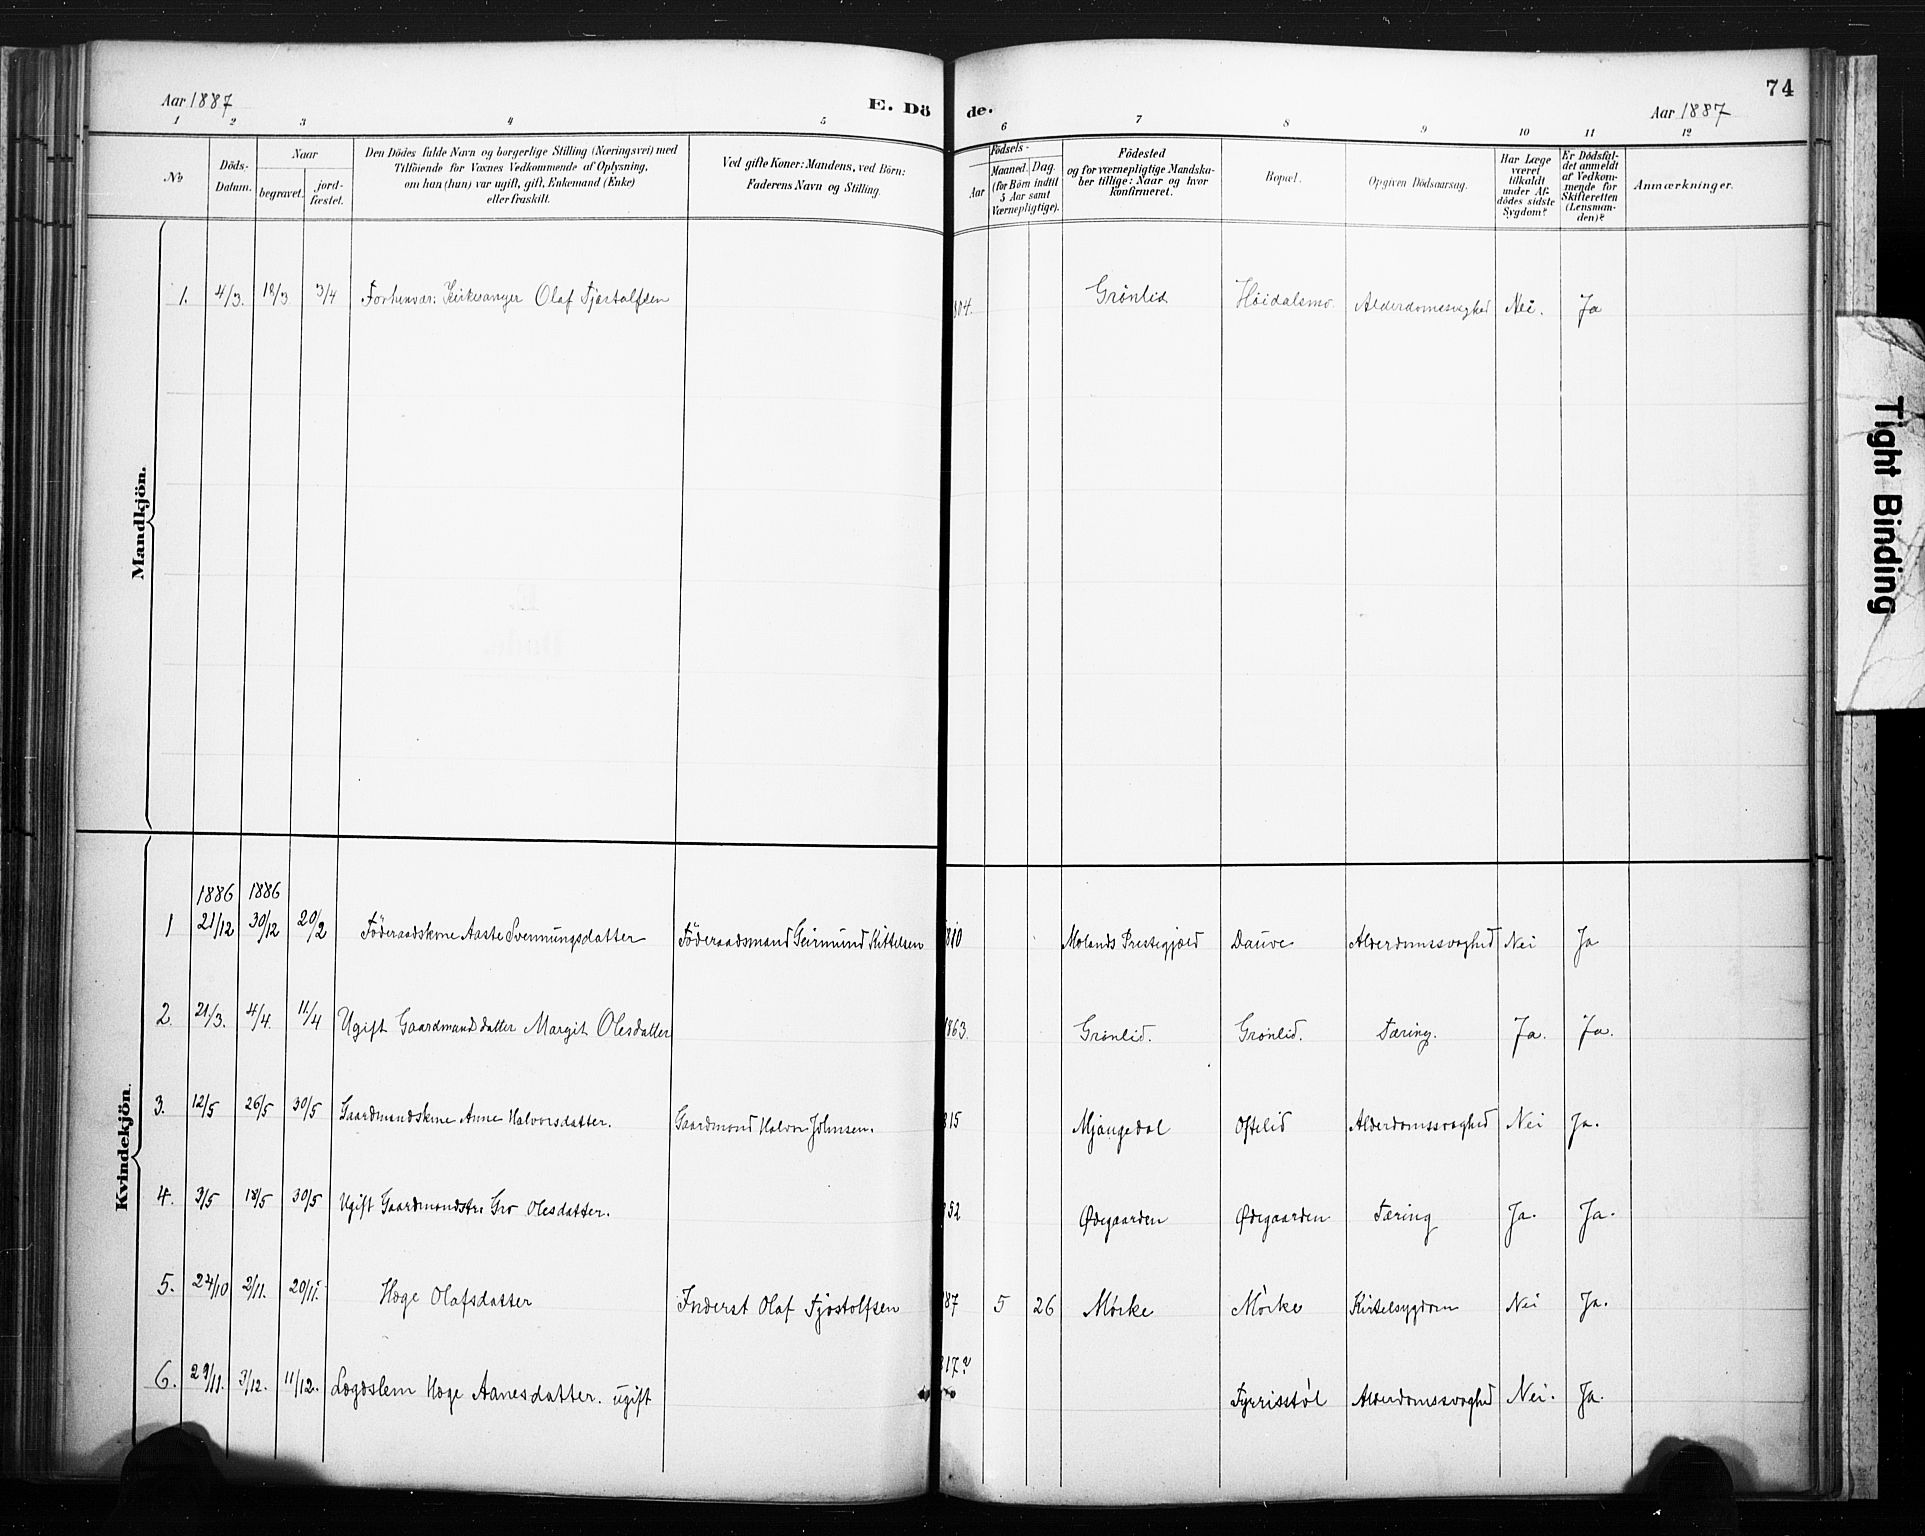 Aar 1887
E. Dö
1 2 3 4 5
No
Döds-Datum.
Naar
begravet.
jord-fæstet.
Den Dödes fulde Navn og borgerlige Stilling (Næringsvei) med
Tilföiende for Voxnes Vedkommende af Oplysning,
om han (hun) var ugift, gift, Enkemand (Enke)
eller fraskilt.
Ved gifte Koner: Mandens, ved Börn:
Faderens Navn og Stilling.
Mandkjön.
1. 4/3. 18/3 3/4 Forhenvær: Kirkesanger Olaf Tjøstolfsen
Kvindekjön.
1886 1886
1 21/12 30/12 20/2 Föderaadskone Aaste Svennungsdatter Föderaadsmand Geirmund Kittelsen
2. 21/3. 4/4. 11/4 Ugift Gaardmandsdatter Margit Olesdatter
3. 12/5 26/5 30/5 Gaardmandskone Anne Halvorsdatter. Gaardmand Halvor Johnsen.
4. 3/5 18/5 30/5 Ugift Gaardmandstr: Gro Olesdatter.
5. 24/10 2/11. 20/11. Hæge Olafsdatter Inderst Olaf Tjøstolfsen
6. 29/11. 3/12. 11/12. Lægdslem Hæge Aanesdatter. ugift
74
de.
Aar 1887
6 7 8 9 10 11 12
Födsels-
Aar
Maaned. Dag.
(for Börn indtil
5 Aar samt
Værnepligtige).
Födested
og for værnepligtige Mandska-
ber tillige: Naar og hvor
konfirmeret.
Bopæl.
Opgiven Dödsaarsag.
Har Læge
været
tilkaldt
under Af-
dödes sidste
Sygdom?
Er Dödsfal-
det anmeldt
af Vedkom-
mende for
Skifteretten
(Lensman-
den)?
Anmærkninger.
804. Grönlid Höidalsmo. Alderdomssvaghed Nei. Ja
810 Molands Prestegjæld Dauve Alderdomssvaghed Nei Ja
1863. Grönlid. Grönlid. Tæring. Ja. Ja.
815 Mjaugedal Oftelid Alderdomssvaghed Nei Ja.
852 Ødegaarden Ødegaarden Tæring Ja. Ja.
87 5 26 Mörke Mörke Kirtelsygdom Nei Ja.
817? Fyrrisstøl Alderdomssvaghed Nei. Ja.
Tight Binding